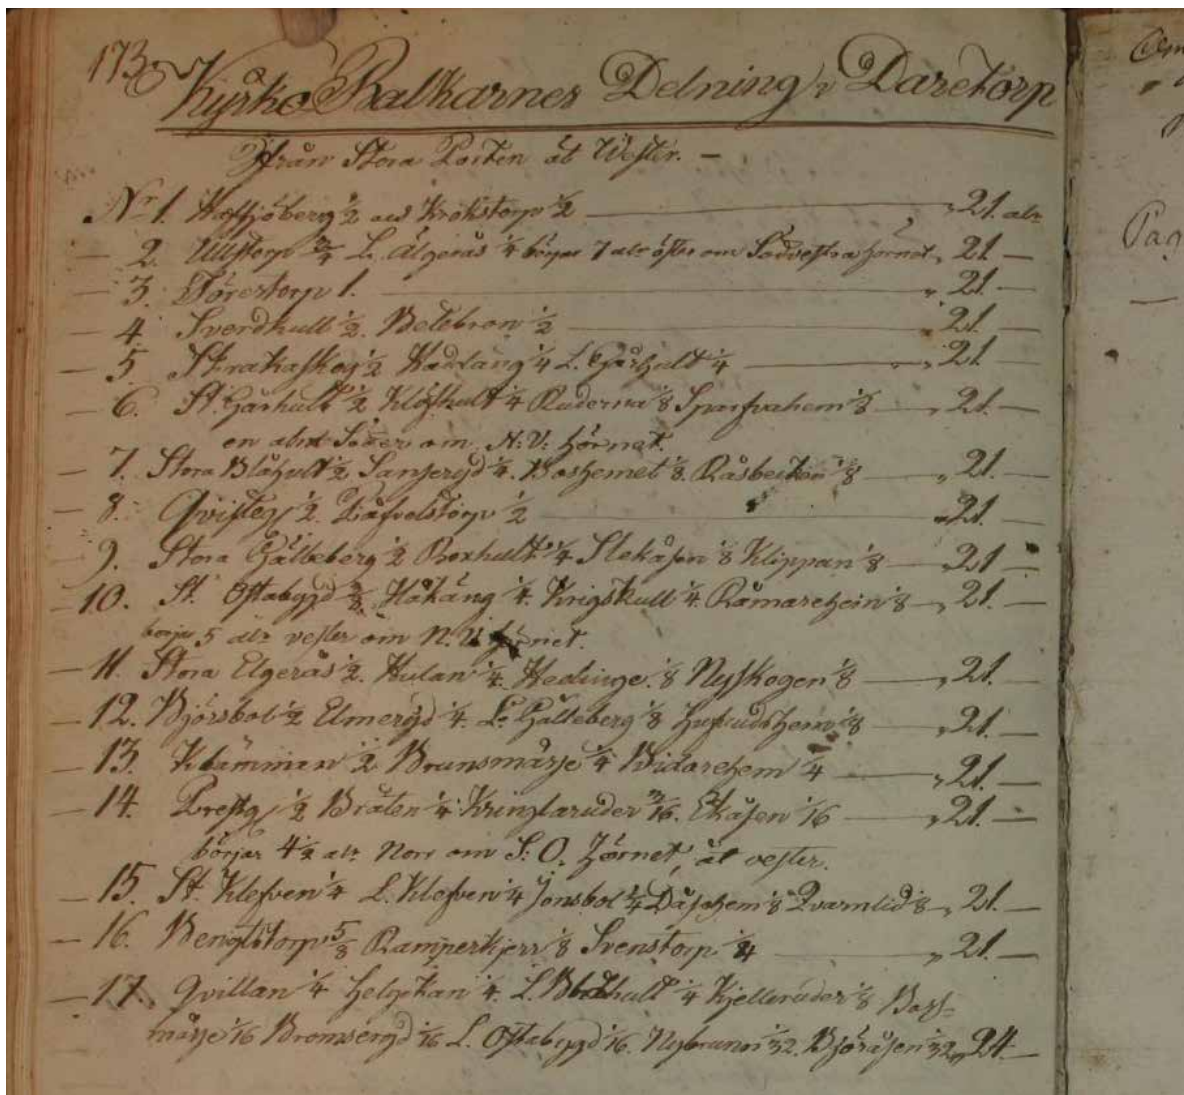 173.
Kyrko Balkarnes Delning i Daretorp
Ifrån Stora Porten åt Wester. —
Nr 1. Hafsjöberg 1/2 och Krokstorp 1/2 — „ 21. alr
— 2. Ullstorp 3/4 L. Älgerås 1/4 börjar 7 alr öster om Södvestra hörnet, „ 21 —
— 3. Torestorp 1. — „ 21 —
— 4 Sverdhult 1/2. Betebron 1/2 — 21. —
— 5 Strakaskog 1/2 Kadäng 1/4 L. Gärhult 1/4 — „ 21. —
— 6. St. Gärhult 1/2 Klofhult 1/4 Ruderna 1/8 Sparfvahem 1/8 — „ 21. —
en aln Söder om N: V. hörnet.
— 7. Stora Blåhult 1/2 Sanseryd 1/4. Boshemet 1/8. Råsbecken 1/8 — „ 21. —
— 8. Qvisteg 1/2. 1/2 — 21. —
— 9. Stora Gälleberg 1/2 Boxhult 1/4 Stekåsen 1/8 Klippan 1/8 — 21 —
— 10. St. Oftabygd 3/8 Håkäng 1/4. Krigskull 1/4. Råmarehem 1/8 — „ 21. —
börjar 5 alr vester om N. hörnet.
— 11. Stora Elgerås 1/2. Hulan 1/4. Hedinge. 1/8 Nyskogen 1/8 — „ 21. —
— 12. Björsbol 1/2 Elmeryd 1/4. L. Gälleberg 1/8 1/8 — „ 21. —
— 13. Klämman 1/2 Brunsmårse 1/4 Bidarehem 1/4 — „ 21. —
— 14. Prestg 1/2 Bråten 1/4 Kringlaruder 3/16. Ekåsen 1/16 — „ 21. —
börjar 4 1/2 alr Norr om S: O. hörnet, åt vester.
— 15. St. Klefven 1/4 L. Klefven 1/4 Jonsbol 1/4 Dåsehem 1/8 Qvarnlid 1/8 „ 21. —
— 16. Bengtstorp 5/8 Ramperkjerr 1/8 Svenstorp 1/4 — „ 21. —
— 17. Qvillan 1/4 Helgikan 1/4. L. Blåhult 1/4 Kjelleruder 1/8 Bos-
mårse 1/16 Bromseryd 1/16 L. Oftabygd 1/16. Nybrunn 1/32. Björåsen 1/32 „ 24. —